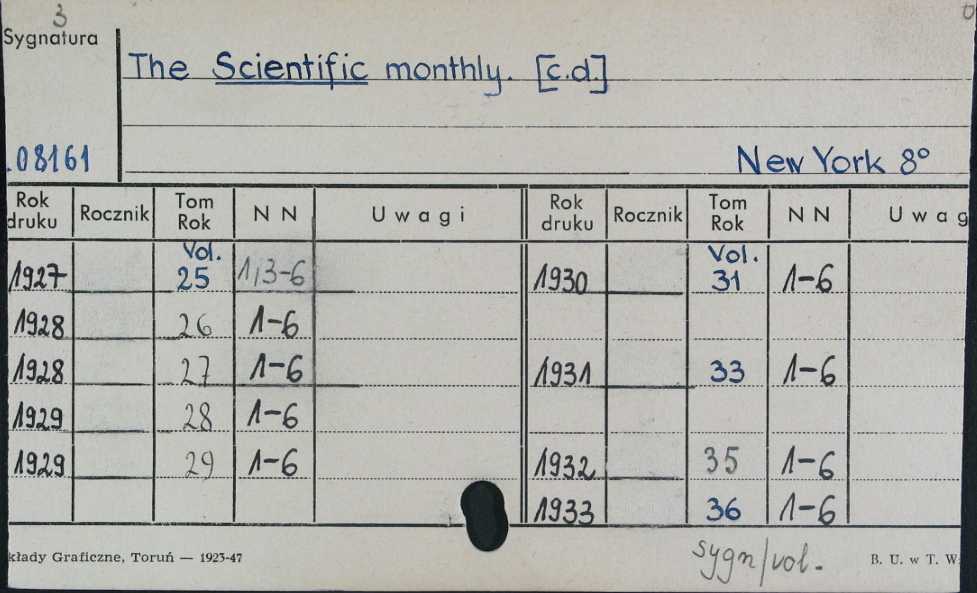 3
Sygnatura
The Scientific monthly. [c.d.]
.08161
New York 8°
Rok druku Rocznik Tom Rok N N Uwagi Rok druku Rocznik Tom Rok N N Uwag
1927 Vol. 25 1,3-6 1930 Vol. 31 1-6
1928 26 1-6
1928 27 1-6 1931 33 1-6
1929 28 1-6
1929 29 1-6 1932 35 1-6
1933 36 1-6
kłady Graficzne, Toruń — 1923-47
sygn/vol.
B. U. w T. W